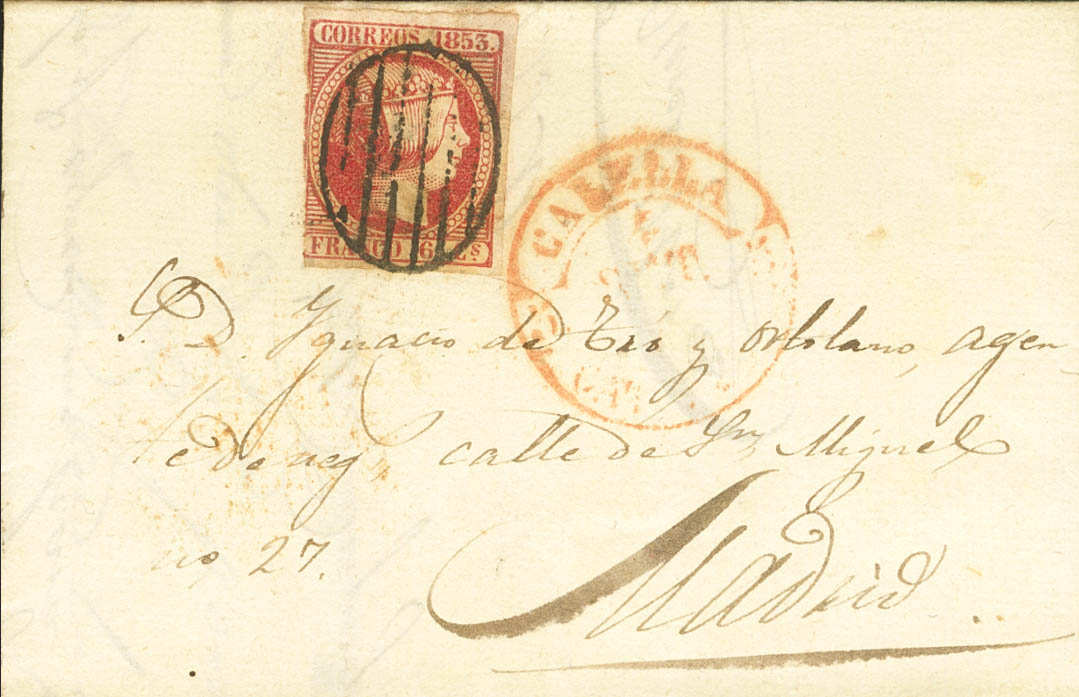 CORREOS 1853.
FRANCO 6 Cs
CALELLA
S. D. Ignacio de y agen
te de neg calle de Sn Miguel
no 27.
Madrid